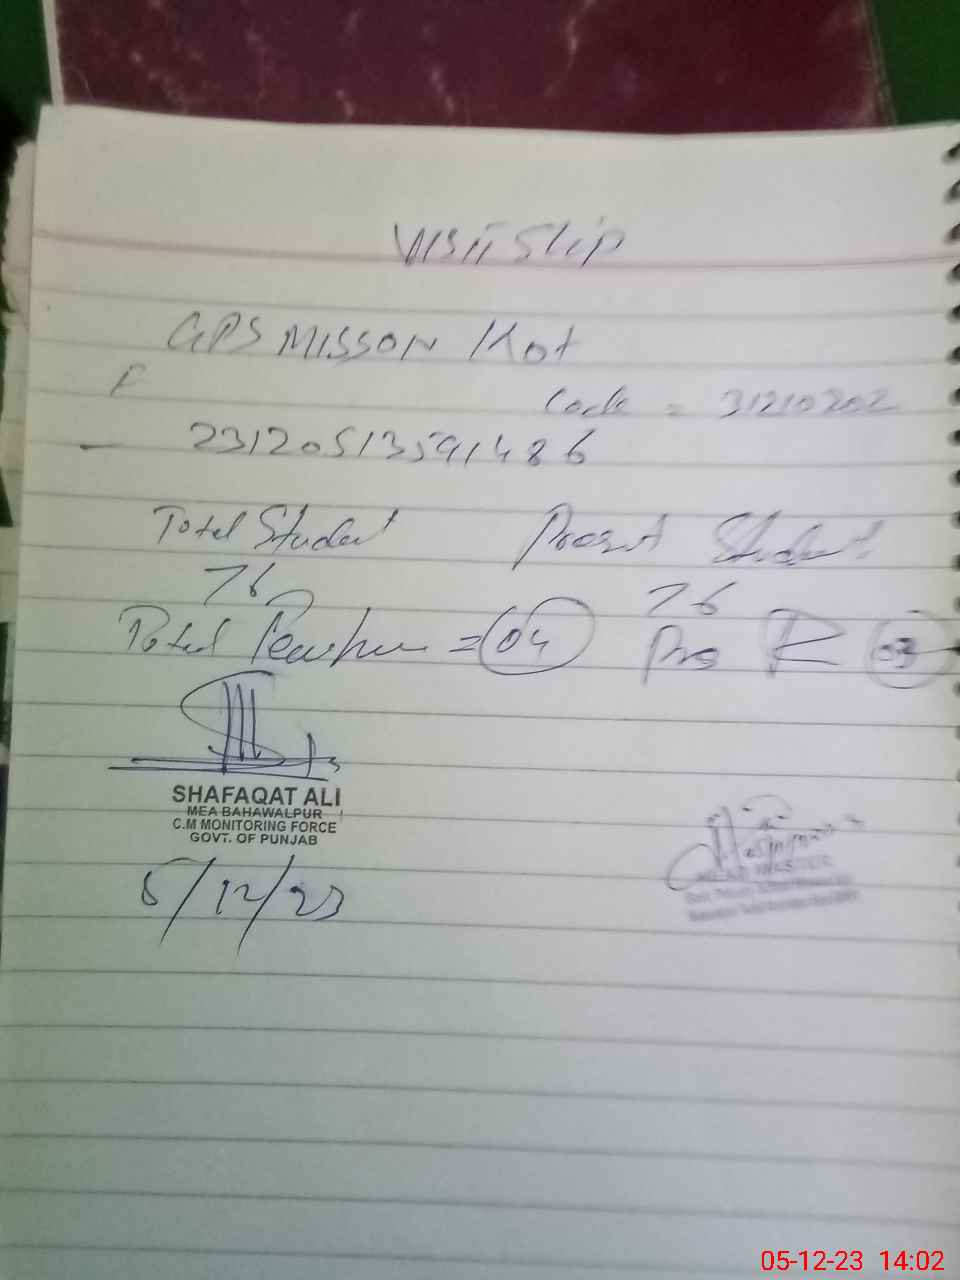 Visit Slip
GPS MISSON Kot
Code = 31210202
- 23120513591486
Total Student Present Student
76 76
Total Teacher = 04 Pre 03
SHAFAQAT ALI
MEA BAHAWALPUR
C.M MONITORING FORCE
GOVT. OF PUNJAB
5/12/23
HEAD MASTER
05-12-23 14:02